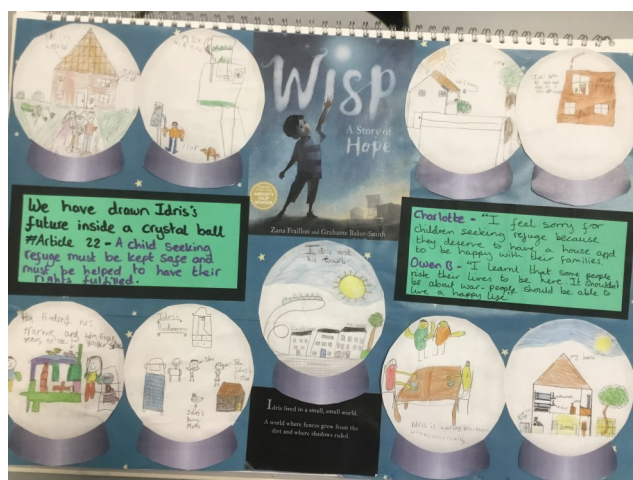 WISP
A Story of
Hope
Zana Fraillon and Grahame Baker-Smith
We have drawn Idris's
future inside a crystal ball
#Article 22 - A child seeking
refuge must be kept safe and
must be helped to have their
rights fulfilled.
Charlotte - "I feel sorry for
children seeking refuge because
they deserve to have a house and
to be happy with their families
Owen B - "I learnt that some people
risk their lives to be here. It shouldn't
be about war - people should be able to
live a happy life."
Idris and
his town
Idris's
Bedroom
Idris lived in a small, small world.
A world where fences grew from the
dirt and where shadows ruled.
Idris is having
my house